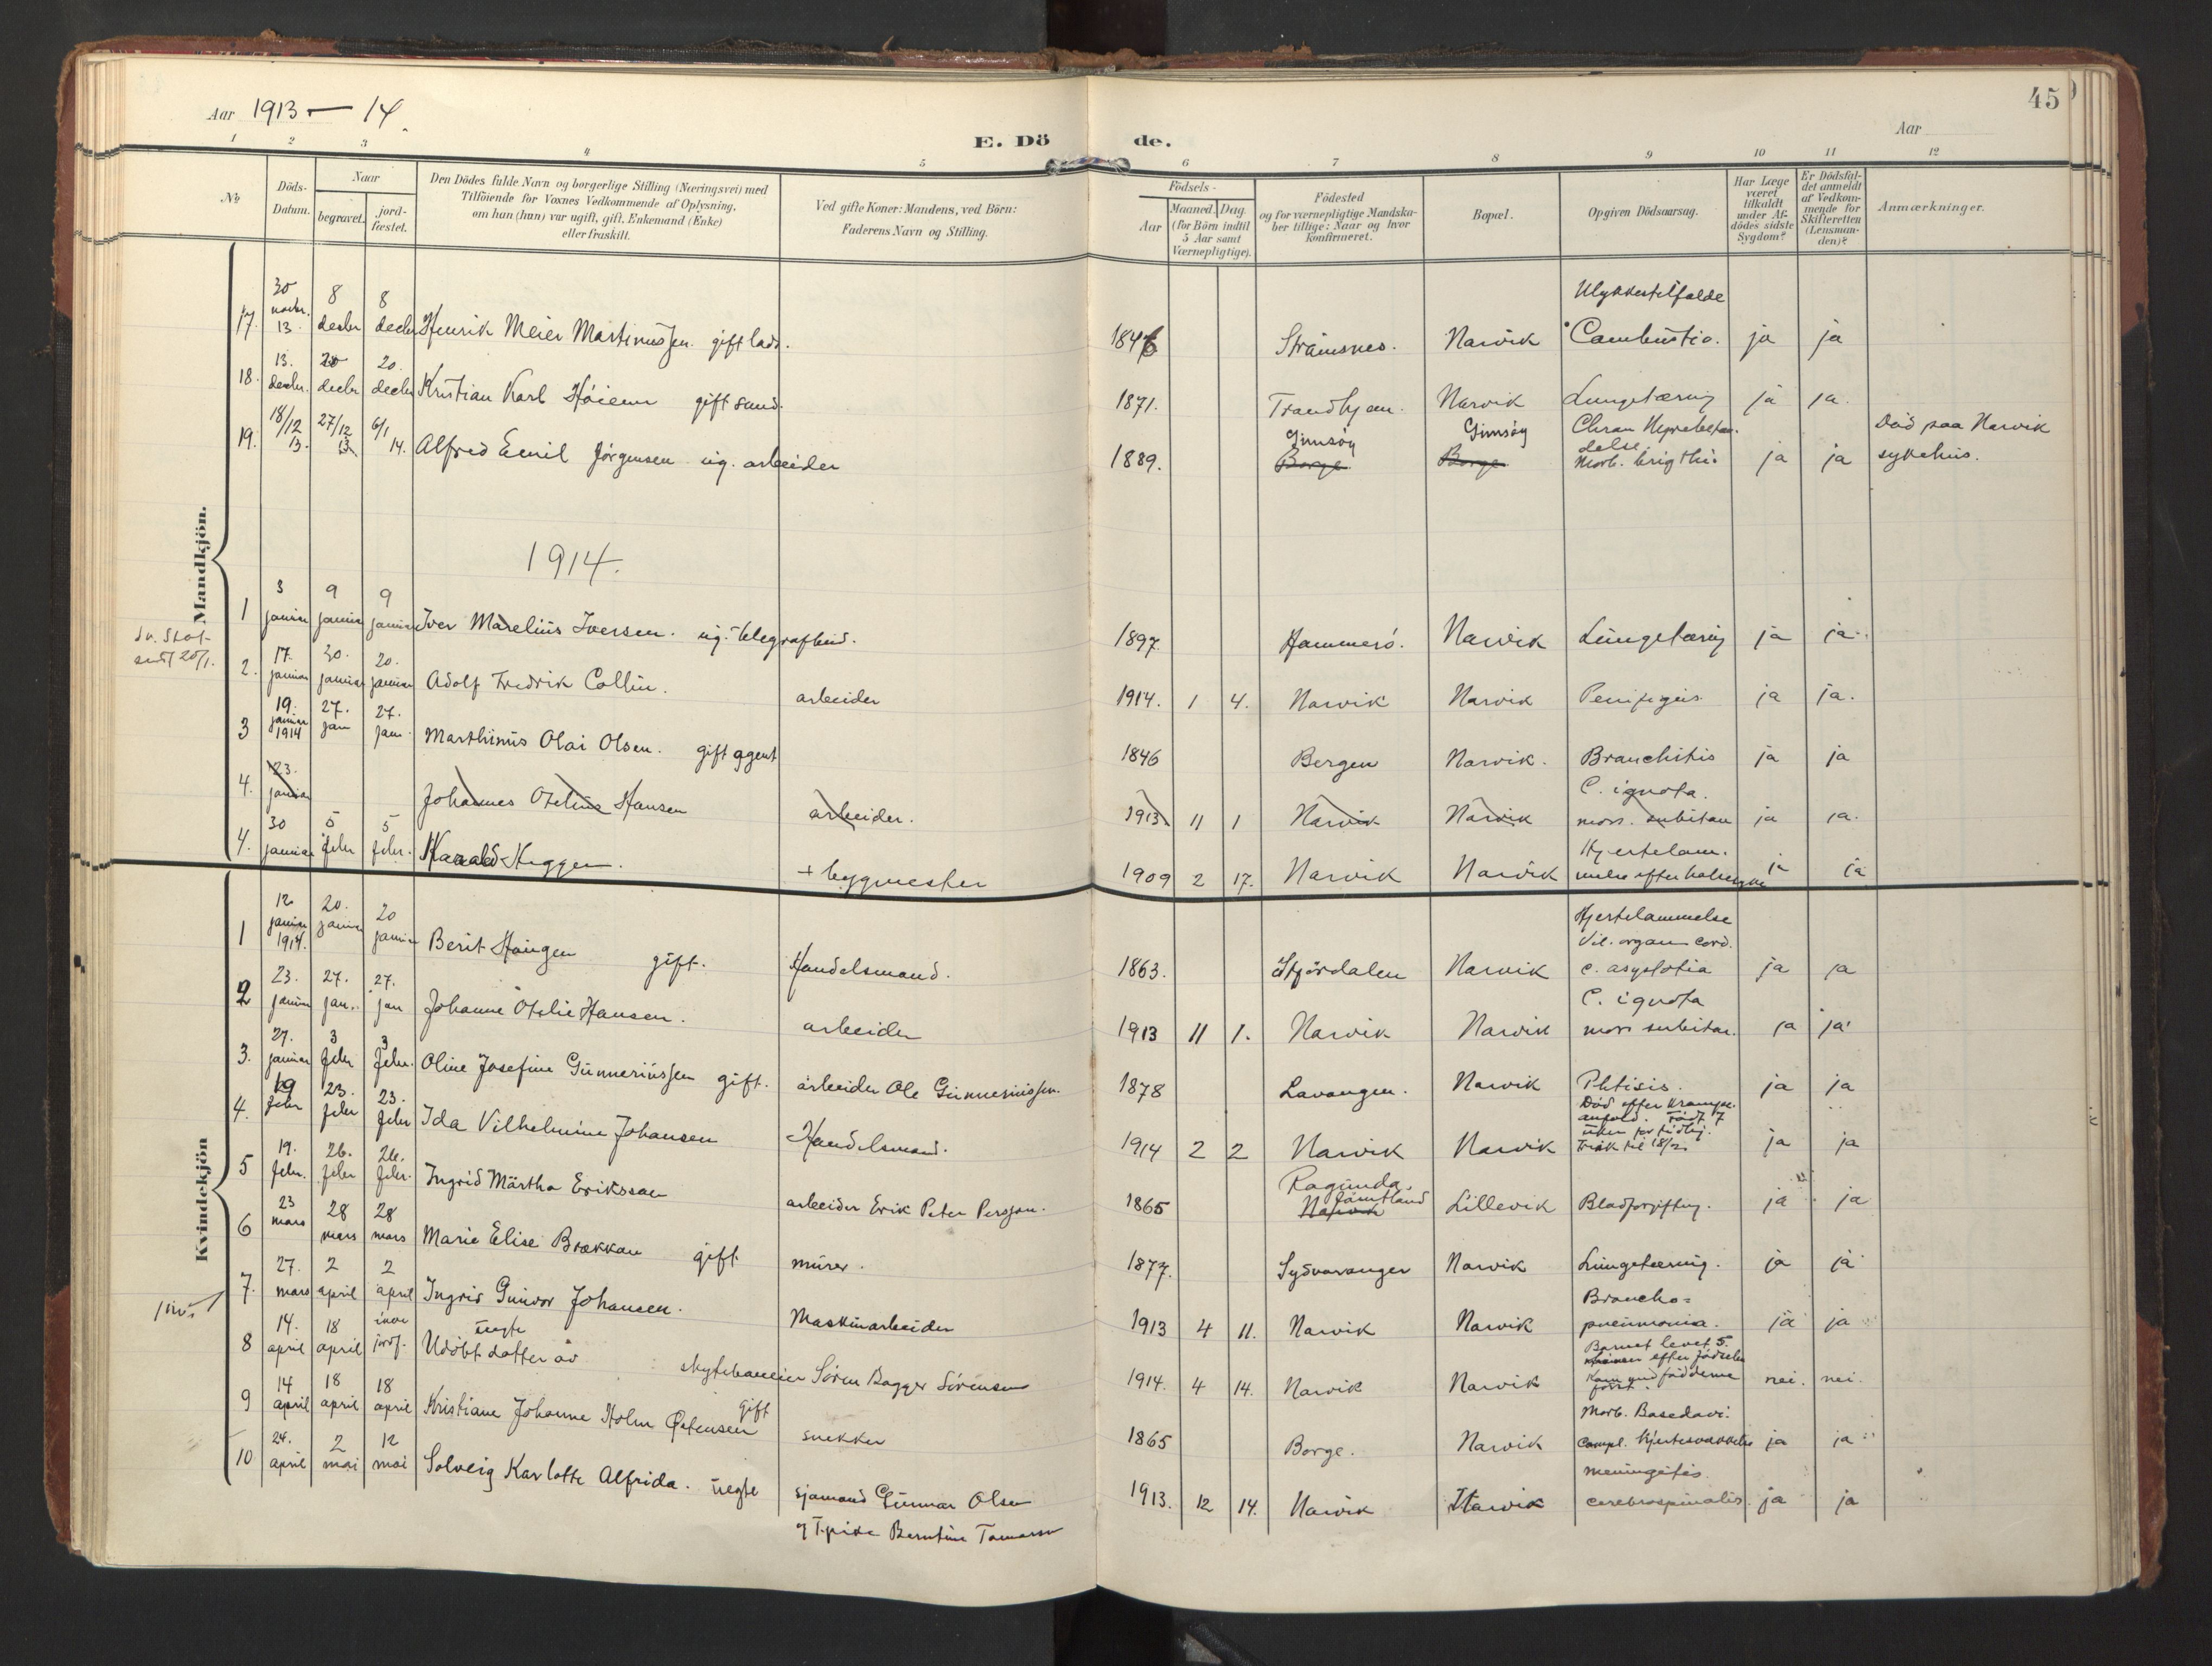 Aar 1913 — 14.
45
E. Döde.
Aar
1 2 3 4 5 6 7 8 9 10 11 12
No
Döds-Datum.
Naar
begravet.
jord-fæstet.
Den Dödes fulde Navn og borgerlige Stilling (Næringsvei) med
Tilföiende for Voxnes Vedkommende af Oplysning,
om han (hun) var ugift, gift, Enkemand (Enke)
eller fraskilt.
Ved gifte Koner: Mandens, ved Börn:
Faderens Navn og Stilling.
Födsels-
Aar
Maaned. Dag.
(for Börn indtil
5 Aar samt
Værnepligtige).
Födested
og for værnepligtige Mandska-
ber tillige: Naar og hvor
konfirmeret.
Bopæl.
Opgiven Dödsaarsag.
Har Læge
været
tilkaldt
under Af-
dödes sidste
Sygdom?
Er Dödsfal-
det anmeldt
af Vedkom-
mende for
Skifteretten
(Lensman-
den)?
Anmærkninger.
Mandkjön.
17. 30 novbr. 13. 8 decbr 8 decbr Henrik Meier Martinussen. gift 1846 Strømsnes. Narvik Ulykkestilfælde Combustio. ja ja
18. 13. decbr. 20 decbr 20. decbr Kristian Karl Høiem gift 1871. Trondhjem. Narvik Lungetæring ja ja.
19. 18/12 13. 27/12 13 6/1 14. Alfred Emil Jørgensen ug. arbeider 1889. Gimsøy Borge Gimsøy Borge Chron. delse Morb. brigthii ja ja Död paa Narvik sykehus.
1914.
1 3 januar 9 januar 9 januar Iver Marelius Iversen. ug. telegrafbud. 1897. Hammerö. Narvik Lungetæring ja ja.
2. 17. januar 20. januar 20. januar Adolf Fredrik Collin. arbeider 1914. 1 4. Narvik Narvik ja ja.
3 19. januar 1914 27. jan 27. jan. Marthinus Olai Olsen. gift agent 1846 Bergen Narvik. Bronchitis ja ja
4. 23. januar Johannes Otelius Hansen arbeider. 1913 11 1 Narvik Narvik C. ignota. mors. subitan ja ja.
4. 30 januar 5 febr 5 febr. Harald Heggen. + bygmester 1909 2 17. Narvik Narvik Hjertelam- melse efter ja ja
Kvindekjön
1 12 januar 1914. 20. januar 20 januar Berit Haugen gift. Handelsmand. 1863. Stjördalen Narvik Hjertelammelse Vit. organ cord. c. asystolia ja ja
2 23. januar 27. jan. 27. jan Johanne Otelie Hansen. arbeider 1913 11 1. Narvik Narvik C. ignota mors subitan. ja ja
3. 27. januar 3 febr 3 febr. Oline Josefine Gunneriussen gift. arbeider Ole Gunneriussen. 1878 Lavangen. Narvik Phtisis. ja ja
4. 19 febr 23. febr 23. febr Ida Vilhelmine Johansen Handelsmand. 1914 2 2 Narvik Narvik Död efter krampe- anfald. Født 7 uker for tidlig. Frisk til 18/2. ja ja
5 19. febr. 26. febr 26. febr. Ingrid Märtha Eriksson arbeider Erik Peter Persson. 1865 Ragunda, Jämtland Narvik Lillevik Blodforgiftng. ja ja
6 23 mars 28 mars 28 mars Marie Elise Brækkan gift murer. 1877. Sydvaranger Narvik Lungetæring. ja ja
7. 27. mars 2 april 2 april Ingrid Gunvor Johansen. Maskinarbeider 1913 4 11. Narvik Narvik Broncho= pneumonia. ja ja
8 14. april 18 april ikke jordf. Udöbt uegte datter av Sören Bagger Sörensen 1914. 4 14. Narvik Narvik Barnet levet 5. efter födselen nei. nei.
9 14 april 18 april 18 april Kristiane Johanne Holm Östensen gift snekker 1865 Borge. Narvik Morb. Basedowi. compl. Hjertesvækkelse ja ja
10 24. april 2 mai 12 mai Solveig Karlotte Alfrida. uegte sjømand Gunnar Olsen 1913. 12 14. Narvik Narvik meningitis cerebrospinalis. ja ja
og Berntine